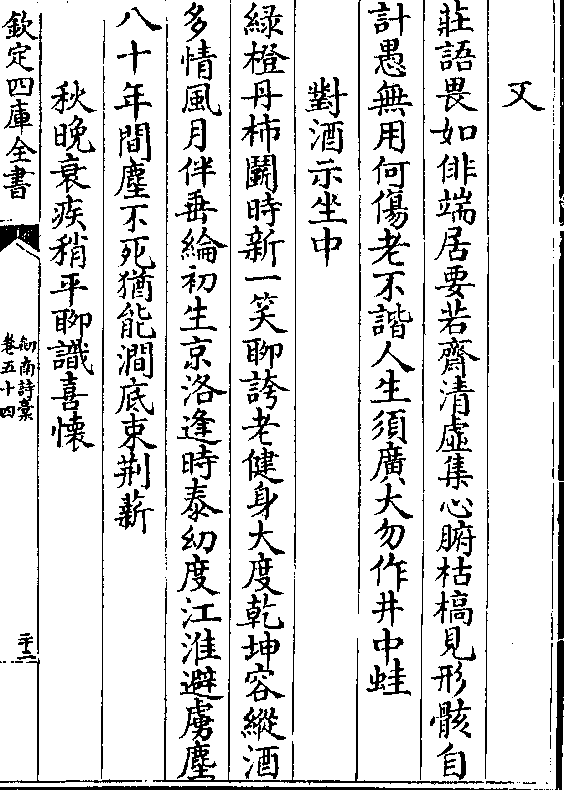 又
莊語畏如俳端居要若齋清虛集心腑枯槁見形骸自
計愚無用何傷老不諧人生須廣大勿作井中蛙
對酒示坐中
綠橙丹柿鬭時新一笑聊誇老健身大度乾坤容縱酒
多情風月伴垂綸初生京洛逢時泰幼度江淮避虜塵
八十年間塵不死猶能澗底束荆薪
秋晚衰疾稍平聊識喜懷
欽定四庫全書
劍南詩稾
卷五十四
二十二